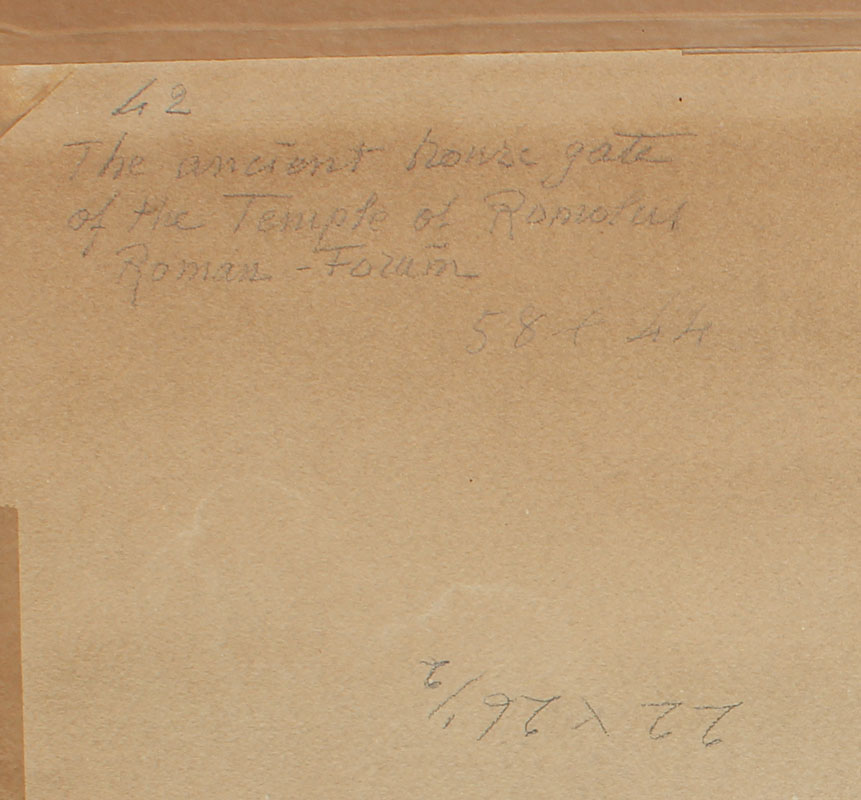 42
The ancient house gate
of the Temple of Romolus
Roman - Forum
58 44
22 x 26 1/2